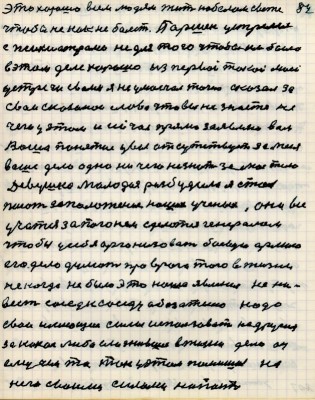 Это хорошо всем людям жить на белом свете 84
чтобы не как не болеть. Паршек устремился
с не для того чтобы не было
в этом деле хорошо из первой такой моей
встречи своей я не умолчал только сказал за
свои сказанное слово что вы не знаете не
чего в этом и сейчас прямо заявляю вам
Ваша понятие у вас отсутствует за меня
ваше дело одно ни чего незнать за мое тело
Девушка молодая разбудила я стал
писать за положения наших ученых, они все
учатся за погонам средства генералам
чтобы у себя организовать боевую армию
его дело думать про врага того в жизни
не когда не было это наша явления не на-
весть сосед соседу обязательно надо
свои имеющие силы использовать на друга
за какое либо сложившее в жизни дело от
случая та ток в этом помощи на
него своими силами напасть